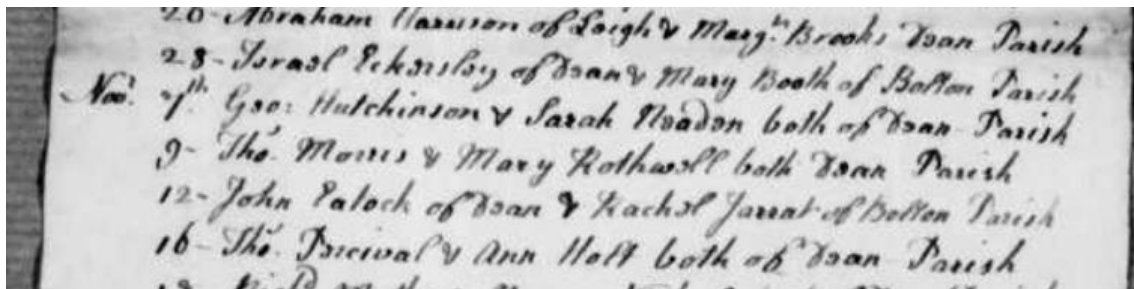 20 - Abraham Harrison of Leigh & Margt. Brooks Dean Parish
28 - Israel Eckersley of Dean & Mary Booth of Bolton Parish
Novr. 7th. Geo: Hutchinson & Sarah Neaden both of Dean Parish
9 - Tho. Morris & Mary Rothwell both Dean Parish
12 - John Eatock of Dean & Rachel Jarrat of Bolton Parish
16 - Tho. Percival & Ann Holt both of Dean Parish